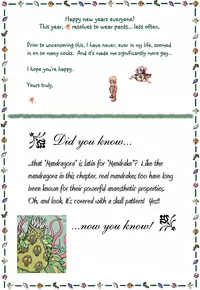 Happy new years everyone!
This year, resolves to wear pants... less often.
Prior to uncensoring this, I have never, ever in my life, zoomed
in on so many cocks. And it's made me significantly more gay...
I hope you're happy.
Yours truly,
Did you know...
...that "Mandragora" is latin for "Mandrake"? Like the
mandragora in this chapter, real mandrakes too have long
been known for their powerful anaesthetic properties.
Oh, and look, it's covered with a skull pattern! Yes!!
...now you know!